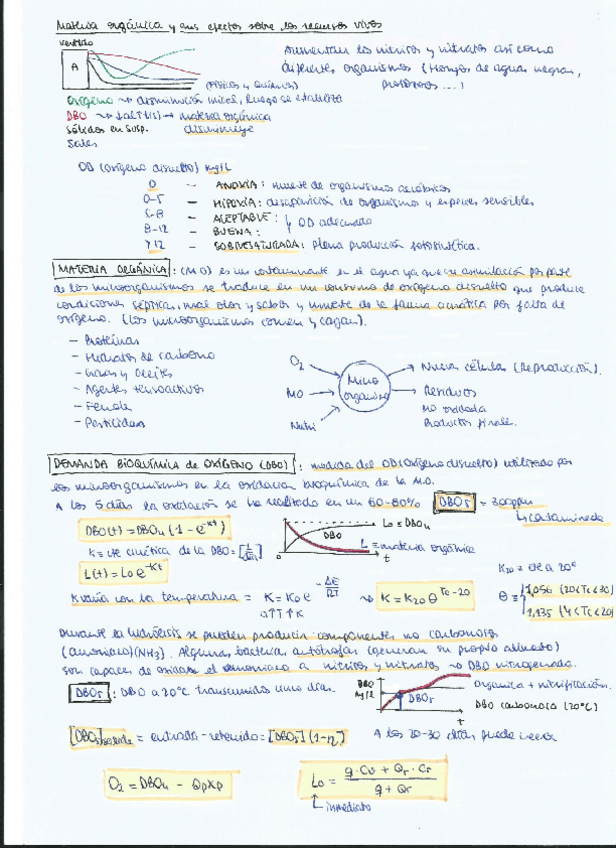 Materia orgánica y sus efectos sobre los recursos vivos
vertido
A
(Físicos y Químicos)
Aumentan los nitritos y nitratos así como
diferentes organismos (Hongos de aguas negras,
protozoos ...)
Oxígeno → disminución inicial, luego se estabiliza
DBO → materia orgánica
Sólidos en Susp. disminuye
Sales
OD (oxígeno disuelto) mg/L
0 — ANOXIA: muerte de organismos aeróbicos
0-5 — HIPOXIA: desaparición de organismos y especies sensibles
5-8 — ACEPTABLE:
8-12 — BUENA: OD adecuado
>12 — SOBRESATURADA: plena producción fotosintética.
MATERIA ORGÁNICA: (MO) es un contaminante en el agua ya que su asimilación por parte
de los microorganismos se traduce en un consumo de oxígeno disuelto que produce
condiciones sépticas, mal olor y sabor y muerte de la fauna acuática por falta de
oxígeno. (Los microorganismos comen y cagan).
— Proteínas
— Hidratos de carbono
— Grasas y Aceites
— Agentes tensoactivos
— Fenoles
— Pesticidas
O2
MO
Nutri
Micro
organismo
Nuevas células (Reproducción).
Residuos
MO oxidada
Productos finales.
DEMANDA BIOQUÍMICA de OXÍGENO (DBO): medida del OD (oxígeno disuelto) utilizado por
los microorganismos en la oxidación bioquímica de la M.O.
A los 5 días la oxidación se ha realizado en un 60-80% DBO5 = 300ppm
↳ contaminada
DBO(t) = DBOu (1 - e^-kt)
K = cte cinética de la DBO = [1/día]
L(t) = Lo e^-kt
DBO
Lo = DBOu
L = materia orgánica
0
t
K20 = cte a 20º
K varía con la temperatura = K = K0 e^-ΔE/RT → K = K20 θ^Tc-20
↑T ↑K
θ = 1,056 (20<Tc<30)
1,135 (4<Tc<20)
Durante la hidrólisis se pueden producir componentes no carbonosos
(amoniaco) (NH3). Algunas bacterias autótrofas (generan su propio alimento)
son capaces de oxidar el amoniaco a nitritos y nitratos → DBO nitrogenada.
DBO5: DBO a 20ºC transcurridos cinco días.
DBO
mg/L
DBO5
t
Orgánica + nitrificación.
DBO carbonosa (20ºC)
[DBO5]saliente = entrada-retenido = [DBO5] (1-η)
A los 20-30 días puede
O2 = DBOu - QpXp
Lo = (q·Cv + Qr·Cr) / (q + Qr)
inmediato